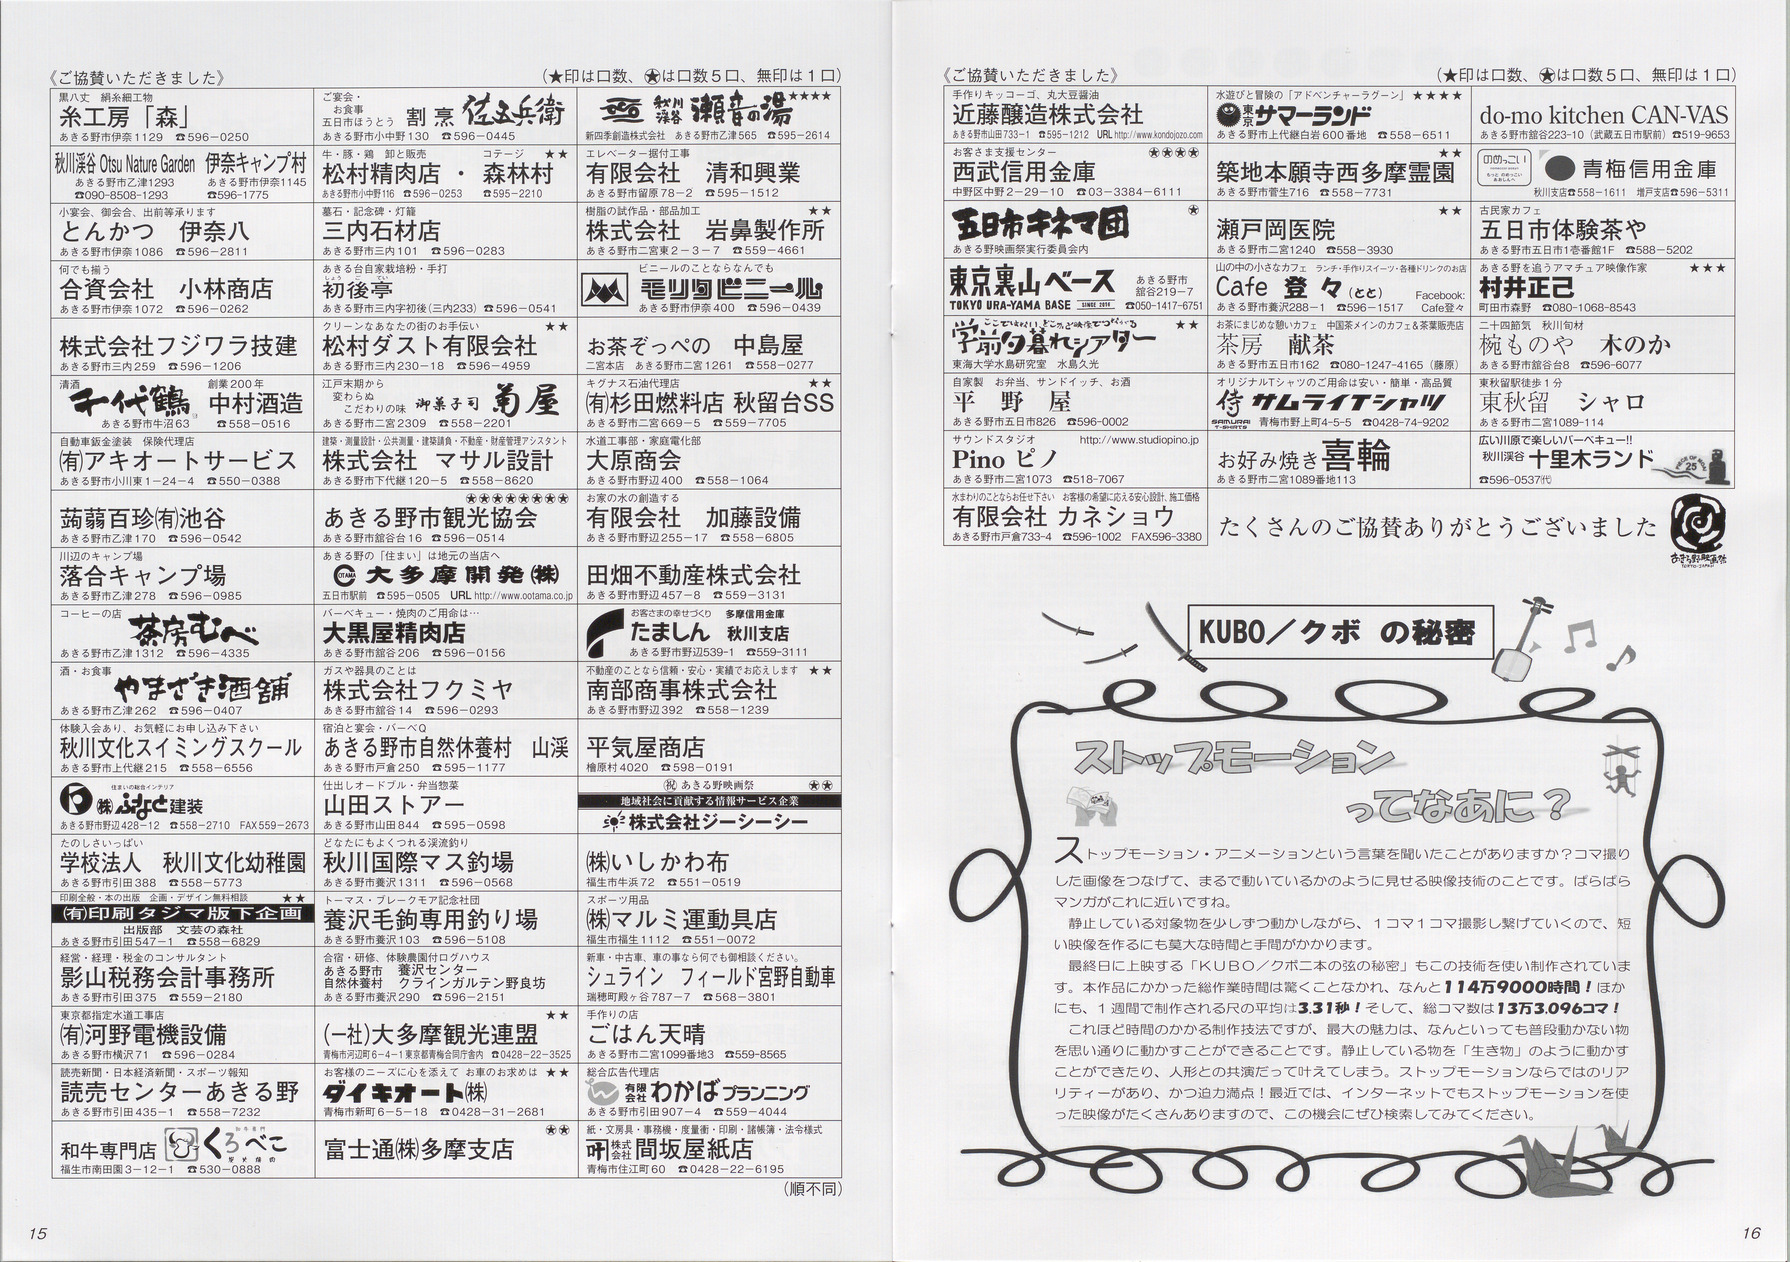 《ご協賛いただきました》
(★印は口数、✪は口数5口、無印は1口)
黒八丈　絹糸細工物
糸工房「森」
あきる野市伊奈1129　☎596-0250
ご宴会・
お食事
五日市ほうとう　割烹　佐五兵衛
あきる野市小中野130　☎596-0445
秋川渓谷　瀬音の湯　★★★★
新四季創造株式会社　あきる野市乙津565　☎595-2614
秋川渓谷 Otsu Nature Garden　伊奈キャンプ村
あきる野市乙津1293　あきる野市伊奈1145
☎090-8508-1293　☎596-1775
牛・豚・鶏　卸と販売　コテージ　★★
松村精肉店・森林村
あきる野市小中野116　☎596-0253　☎595-2210
エレベーター据付工事
有限会社　清和興業
あきる野市留原78-2　☎595-1512
小宴会、御会合、出前等承ります
とんかつ　伊奈八
あきる野市伊奈1086　☎596-2811
墓石・記念碑・灯籠
三内石材店
あきる野市三内101　☎596-0283
樹脂の試作品・部品加工　★★
株式会社　岩鼻製作所
あきる野市二宮東2-3-7　☎559-4661
何でも揃う
合資会社　小林商店
あきる野市伊奈1072　☎596-0262
あきる台自家栽培粉・手打
しょうごてい
初後亭
あきる野市三内字初後(三内233)　☎596-0541
ビニールのことならなんでも
モリタビニール
あきる野市伊奈400　☎596-0439
株式会社フジワラ技建
あきる野市三内259　☎596-1206
クリーンなあなたの街のお手伝い　★★
松村ダスト有限会社
あきる野市三内230-18　☎596-4959
お茶ぞっぺの　中島屋
二宮本店　あきる野市二宮1261　☎558-0277
清酒　創業200年
千代鶴　中村酒造
あきる野市牛沼63　☎558-0516
江戸末期から
変わらぬ
こだわりの味　御菓子司　菊屋
あきる野市二宮2309　☎558-2201
キグナス石油代理店　★★
(有)杉田燃料店 秋留台SS
あきる野市二宮669-5　☎559-7705
自動車鈑金塗装　保険代理店
(有)アキオートサービス
あきる野市小川東1-24-4　☎550-0388
建築・測量設計・公共測量・建築請負・不動産・財産管理アシスタント
株式会社　マサル設計
あきる野市下代継120-5　☎558-8620
水道工事部・家庭電化部
大原商会
あきる野市野辺400　☎558-1064
蒟蒻百珍(有)池谷
あきる野市乙津170　☎596-0542
✪✪✪✪✪✪✪✪
あきる野市観光協会
あきる野市舘谷台16　☎596-0514
お家の水の創造する
有限会社　加藤設備
あきる野市野辺255-17　☎558-6805
川辺のキャンプ場
落合キャンプ場
あきる野市乙津278　☎596-0985
あきる野の「住まい」は地元の当店へ
OTAMA 大多摩開発(株)
五日市駅前　☎595-0505　URL http://www.ootama.co.jp
田畑不動産株式会社
あきる野市野辺457-8　☎559-3131
コーヒーの店
茶房むべ
あきる野市乙津1312　☎596-4335
バーベキュー・焼肉のご用命は…
大黒屋精肉店
あきる野市舘谷206　☎596-0156
お客さまの幸せづくり　多摩信用金庫
たましん　秋川支店
あきる野市野辺539-1　☎559-3111
酒・お食事
やまざき酒舗
あきる野市乙津262　☎596-0407
ガスや器具のことは
株式会社フクミヤ
あきる野市舘谷14　☎596-0293
不動産のことなら信頼・安心・実績でお応えします　★★
南部商事株式会社
あきる野市野辺392　☎558-1239
体験入会あり、お気軽にお申し込み下さい
秋川文化スイミングスクール
あきる野市上代継215　☎558-6556
宿泊と宴会・バーベQ
あきる野市自然休養村　山渓
あきる野市戸倉250　☎595-1177
平気屋商店
檜原村4020　☎598-0191
住まいの総合インテリア
(株)ふぢもと建装
あきる野市野辺428-12　☎558-2710　FAX559-2673
仕出しオードブル・弁当惣菜
山田ストアー
あきる野市山田844　☎595-0598
㊗ あきる野映画祭　✪✪
地域社会に貢献する情報サービス企業
株式会社ジーシーシー
たのしさいっぱい
学校法人　秋川文化幼稚園
あきる野市引田388　☎558-5773
どなたにもよくつれる渓流釣り
秋川国際マス釣場
あきる野市養沢1311　☎596-0568
(株)いしかわ布
福生市牛浜72　☎551-0519
印刷全般・本の出版　企画・デザイン無料相談　★★
(有)印刷タジマ版下企画
出版部　文芸の森社
あきる野市引田547-1　☎558-6829
トーマス・ブレークモア記念社団
養沢毛鉤専用釣り場
あきる野市養沢103　☎596-5108
スポーツ用品
(株)マルミ運動具店
福生市福生1112　☎551-0072
経営・経理・税金のコンサルタント
影山税務会計事務所
あきる野市引田375　☎559-2180
合宿・研修、体験農園付ログハウス
あきる野市　養沢センター
自然休養村　クラインガルテン野良坊
あきる野市養沢290　☎596-2151
新車・中古車、車の事なら何でも御相談ください。
シュライン　フィールド宮野自動車
瑞穂町殿ヶ谷787-7　☎568-3801
東京都指定水道工事店
(有)河野電機設備
あきる野市横沢71　☎596-0284
★★
(一社)大多摩観光連盟
青梅市河辺町6-4-1東京都青梅合同庁舎内　☎0428-22-3525
手作りの店
ごはん天晴
あきる野市二宮1099番地3　☎559-8565
読売新聞・日本経済新聞・スポーツ報知
読売センターあきる野
あきる野市引田435-1　☎558-7232
お客様のニーズに心を添えて　お車のお求めは　★★
ダイキオート(株)
青梅市新町6-5-18　☎0428-31-2681
総合広告代理店
有限会社 わかばプランニング
あきる野市引田907-4　☎559-4044
和牛専門店　くろべこ
福生市南田園3-12-1　☎530-0888
✪✪
富士通(株)多摩支店
紙・文房具・事務機・度量衡・印刷・諸帳簿・法令様式
株式会社 間坂屋紙店
青梅市住江町60　☎0428-22-6195
(順不同)
15
《ご協賛いただきました》
(★印は口数、✪は口数5口、無印は1口)
手作りキッコーゴ、丸大豆醤油
近藤醸造株式会社
あきる野市山田733-1　☎595-1212　URL http://www.kondojozo.com
水遊びと冒険の「アドベンチャーラグーン」★★★★
東京サマーランド
あきる野市上代継白岩600番地　☎558-6511
do-mo kitchen CAN-VAS
あきる野市舘谷223-10（武蔵五日市駅前）☎519-9653
お客さま支援センター　✪✪✪✪
西武信用金庫
中野区中野2-29-10　☎03-3384-6111
★★
築地本願寺西多摩霊園
あきる野市菅生716　☎558-7731
のめっこい
青梅信用金庫
秋川支店☎558-1611　増戸支店☎596-5311
五日市キネマ団　✪
あきる野映画祭実行委員会内
★★
瀬戸岡医院
あきる野市二宮1240　☎558-3930
古民家カフェ
五日市体験茶や
あきる野市五日市1壱番館1F　☎588-5202
東京裏山ベース　あきる野市
舘谷219-7
TOKYO URA-YAMA BASE　SINCE 2014　☎050-1417-6751
山の中の小さなカフェ　ランチ・手作りスイーツ・各種ドリンクのお店
Cafe 登々（とと）　Facebook:
あきる野市養沢288-1　☎596-1517　Cafe登々
あきる野を追うアマチュア映像作家　★★★
村井正己
町田市森野　☎080-1068-8543
ここではない、どこかと映像でつながる　★★
学前夕暮れシアター
東海大学水島研究室　水島久光
お茶にまじめな憩いカフェ　中国茶メインのカフェ&茶葉販売店
茶房　献茶
あきる野市五日市162　☎080-1247-4165（藤原）
二十四節気　秋川旬材
椀ものや　木のか
あきる野市舘谷台8　☎596-6077
自家製　お弁当、サンドイッチ、お酒
平野屋
あきる野市五日市826　☎596-0002
オリジナルTシャツのご用命は安い・簡単・高品質
侍 サムライTシャツ
SAMURAI T-SHIRTS　青梅市野上町4-5-5　☎0428-74-9202
東秋留駅徒歩1分
東秋留　シャロ
あきる野市二宮1089-114
サウンドスタジオ　http://www.studiopino.jp
Pino ピノ
あきる野市二宮1073　☎518-7067
お好み焼き喜輪
あきる野市二宮1089番地113
広い川原で楽しいバーベキュー!!
秋川渓谷 十里木ランド
☎596-0537(代)
水まわりのことならお任せ下さい　お客様の希望に応える安心設計、施工価格
有限会社 カネショウ
あきる野市戸倉733-4　☎596-1002　FAX596-3380
たくさんのご協賛ありがとうございました
あきる野映画祭
TOKYO-JAPAN
KUBO／クボ の秘密
ストップモーション
ってなあに？
ストップモーション・アニメーションという言葉を聞いたことがありますか？コマ撮り
した画像をつなげて、まるで動いているかのように見せる映像技術のことです。ぱらぱら
マンガがこれに近いですね。
静止している対象物を少しずつ動かしながら、１コマ１コマ撮影し繋げていくので、短
い映像を作るにも莫大な時間と手間がかかります。
最終日に上映する「ＫＵＢＯ／クボ二本の弦の秘密」もこの技術を使い制作されていま
す。本作品にかかった総作業時間は驚くことなかれ、なんと114万9000時間！ほか
にも、１週間で制作される尺の平均は3.31秒！そして、総コマ数は13万3,096コマ！
これほど時間のかかる制作技法ですが、最大の魅力は、なんといっても普段動かない物
を思い通りに動かすことができることです。静止している物を「生き物」のように動かす
ことができたり、人形との共演だって叶えてしまう。ストップモーションならではのリア
リティーがあり、かつ迫力満点！最近では、インターネットでもストップモーションを使
った映像がたくさんありますので、この機会にぜひ検索してみてください。
16